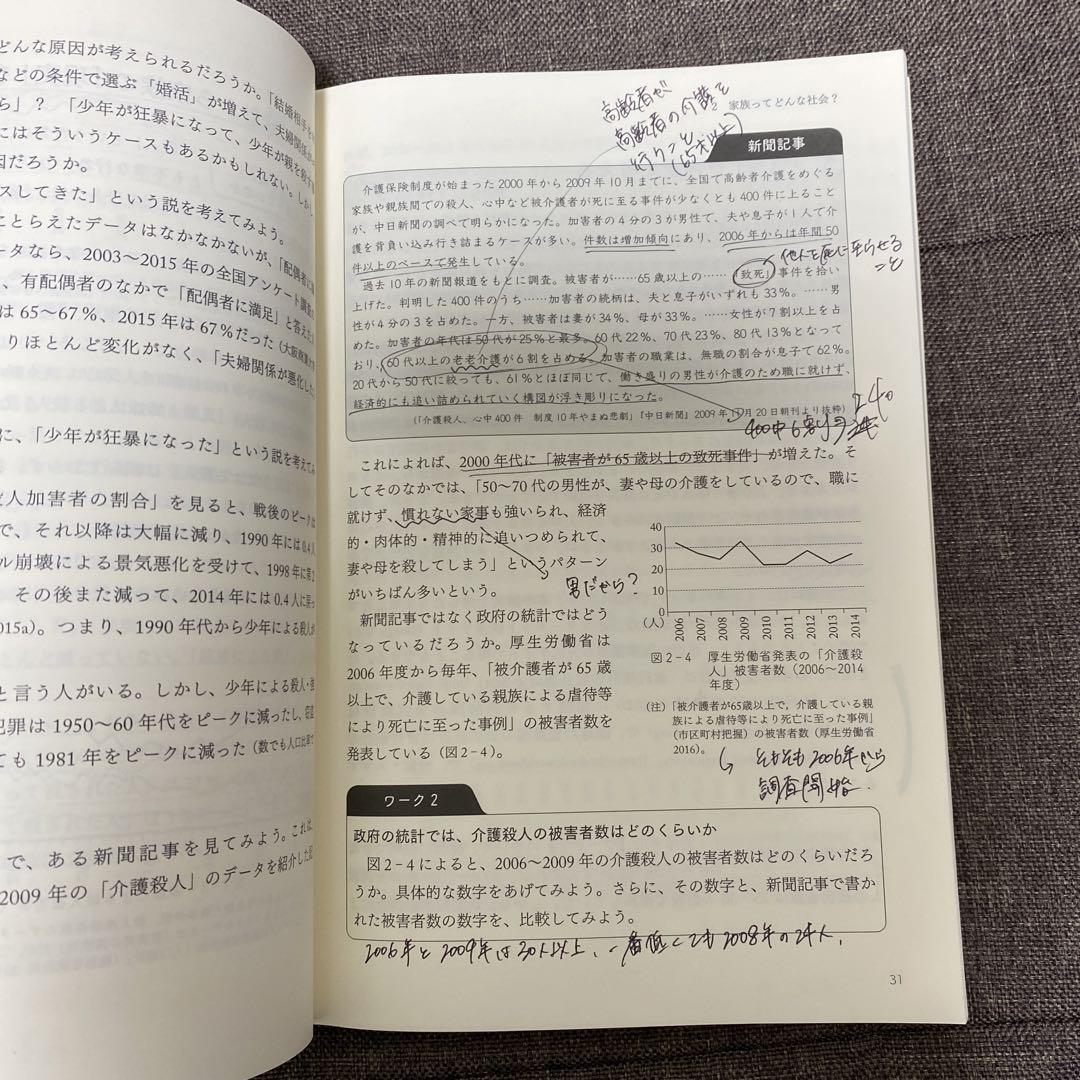 どんな原因が考えられるだろうか。「結婚相手を
などの条件で選ぶ「婚活」が増えて、夫婦関係が
ら」？ 「少年が狂暴になって、少年が親を殺す
にはそういうケースもあるかもしれない。しかし
因だろうか。
スしてきた」という説を考えてみよう。
ことらえたデータはなかなかないが、「配偶者に
ータなら、2003～2015年の全国アンケート調査の
、有配偶者のなかで「配偶者に満足」と答えた人
は65～67％、2015年は67％だった（大阪商業大学
りほとんど変化がなく、「夫婦関係が悪化した
に、「少年が狂暴になった」という説を考えてみ
人加害者の割合」を見ると、戦後のピークは
で、それ以降は大幅に減り、1990年には0.4人
ル崩壊による景気悪化を受けて、1998年に第2
その後また減って、2014年には0.4人に戻っ
2015a）。つまり、1990年代から少年による殺人が
と言う人がいる。しかし、少年による殺人・強
犯罪は1950～60年代をピークに減ったし、窃盗
ても1981年をピークに減った（数でも人口比率で
で、ある新聞記事を見てみよう。これは、
2009年の「介護殺人」のデータを紹介した記
高齢者が
高齢者の介護を
行うこと
（65才以上）
家族ってどんな社会？
新聞記事
介護保険制度が始まった2000年から2009年10月までに、全国で高齢者介護をめぐる
家族や親族間での殺人、心中など被介護者が死に至る事件が少なくとも400件に上ること
が、中日新聞の調べで明らかになった。加害者の4分の3が男性で、夫や息子が1人で介
護を背負い込み行き詰まるケースが多い。件数は増加傾向にあり、2006年からは年間50
件以上のペースで発生している。
他人を死に至らせる
こと
過去10年の新聞報道をもとに調査。被害者が……65歳以上の……「致死」事件を拾い
上げた。判明した400件のうち……加害者の続柄は、夫と息子がいずれも33％。……男
性が4分の3を占めた。一方、被害者は妻が34％、母が33％。……女性が7割以上を占
めた。加害者の年代は50代が25％と最多。60代22％、70代23％、80代13％となって
おり、60代以上の老老介護が6割を占める。加害者の職業は、無職の割合が息子で62％。
20代から50代に絞っても、61％とほぼ同じで、働き盛りの男性が介護のため職に就けず、
経済的にも追い詰められていく構図が浮き彫りになった。
（「介護殺人、心中400件　制度10年やまぬ悲劇」『中日新聞』2009年11月20日朝刊より抜粋）
240
400中6割
これによれば、2000年代に「被害者が65歳以上の致死事件」が増えた。そ
してそのなかでは、「50～70代の男性が、妻や母の介護をしているので、職に
就けず、慣れない家事も強いられ、経済
的・肉体的・精神的に追いつめられて、
妻や母を殺してしまう」というパターン
がいちばん多いという。
男だから？
新聞記事ではなく政府の統計ではどう
なっているだろうか。厚生労働省は
2006年度から毎年、「被介護者が65歳
以上で、介護している親族による虐待等
により死亡に至った事例」の被害者数を
発表している（図2-4）。
40
30
20
10
0
（人）
2006
2007
2008
2009
2010
2011
2012
2013
2014
図2-4　厚生労働省発表の「介護殺
人」被害者数（2006～2014
年度）
（注）「被介護者が65歳以上で、介護している親
族による虐待等により死亡に至った事例」
（市区町村把握）の被害者数（厚生労働省
2016）。
そもそも2006年から
調査開始．
ワーク2
政府の統計では、介護殺人の被害者数はどのくらいか
図2-4によると、2006～2009年の介護殺人の被害者数はどのくらいだろ
うか。具体的な数字をあげてみよう。さらに、その数字と、新聞記事で書か
れた被害者数の数字を、比較してみよう。
2006年と2009年は30人以上、一番低くても2008年の24人．
31